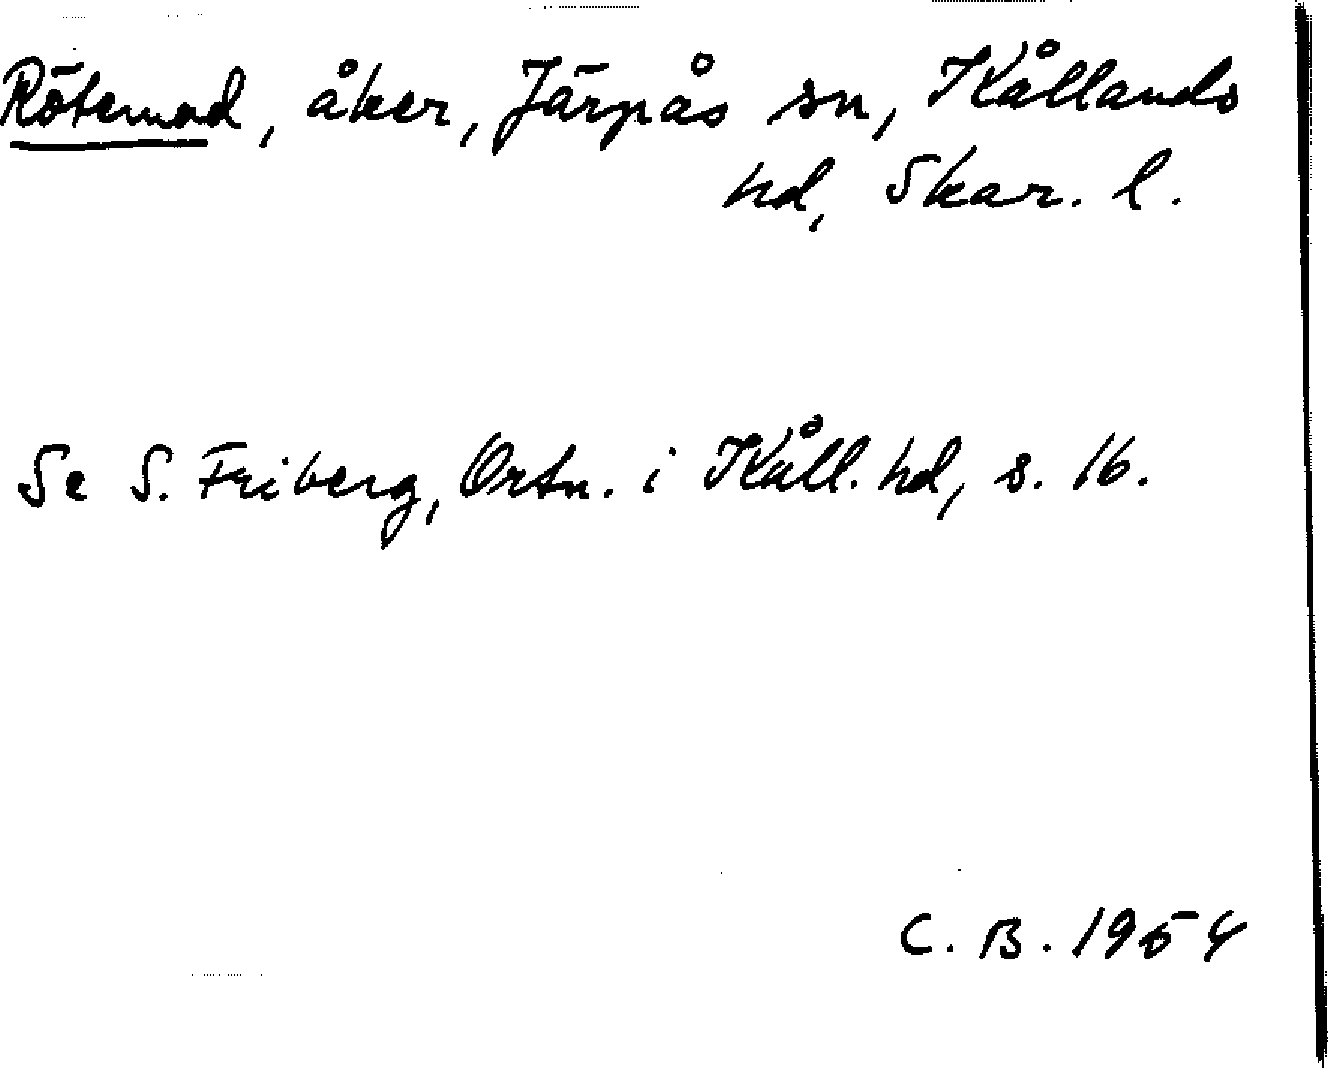 Rötemad, åker, Järpås sn, Kållands
hd, Skar. l.
Se S. Friberg, Ortn. i Kåll. hd, s. 16.
C. B. 1954